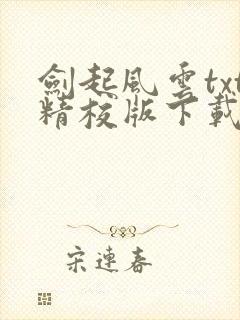 劍起風雲txt
精校版下載
宋連春